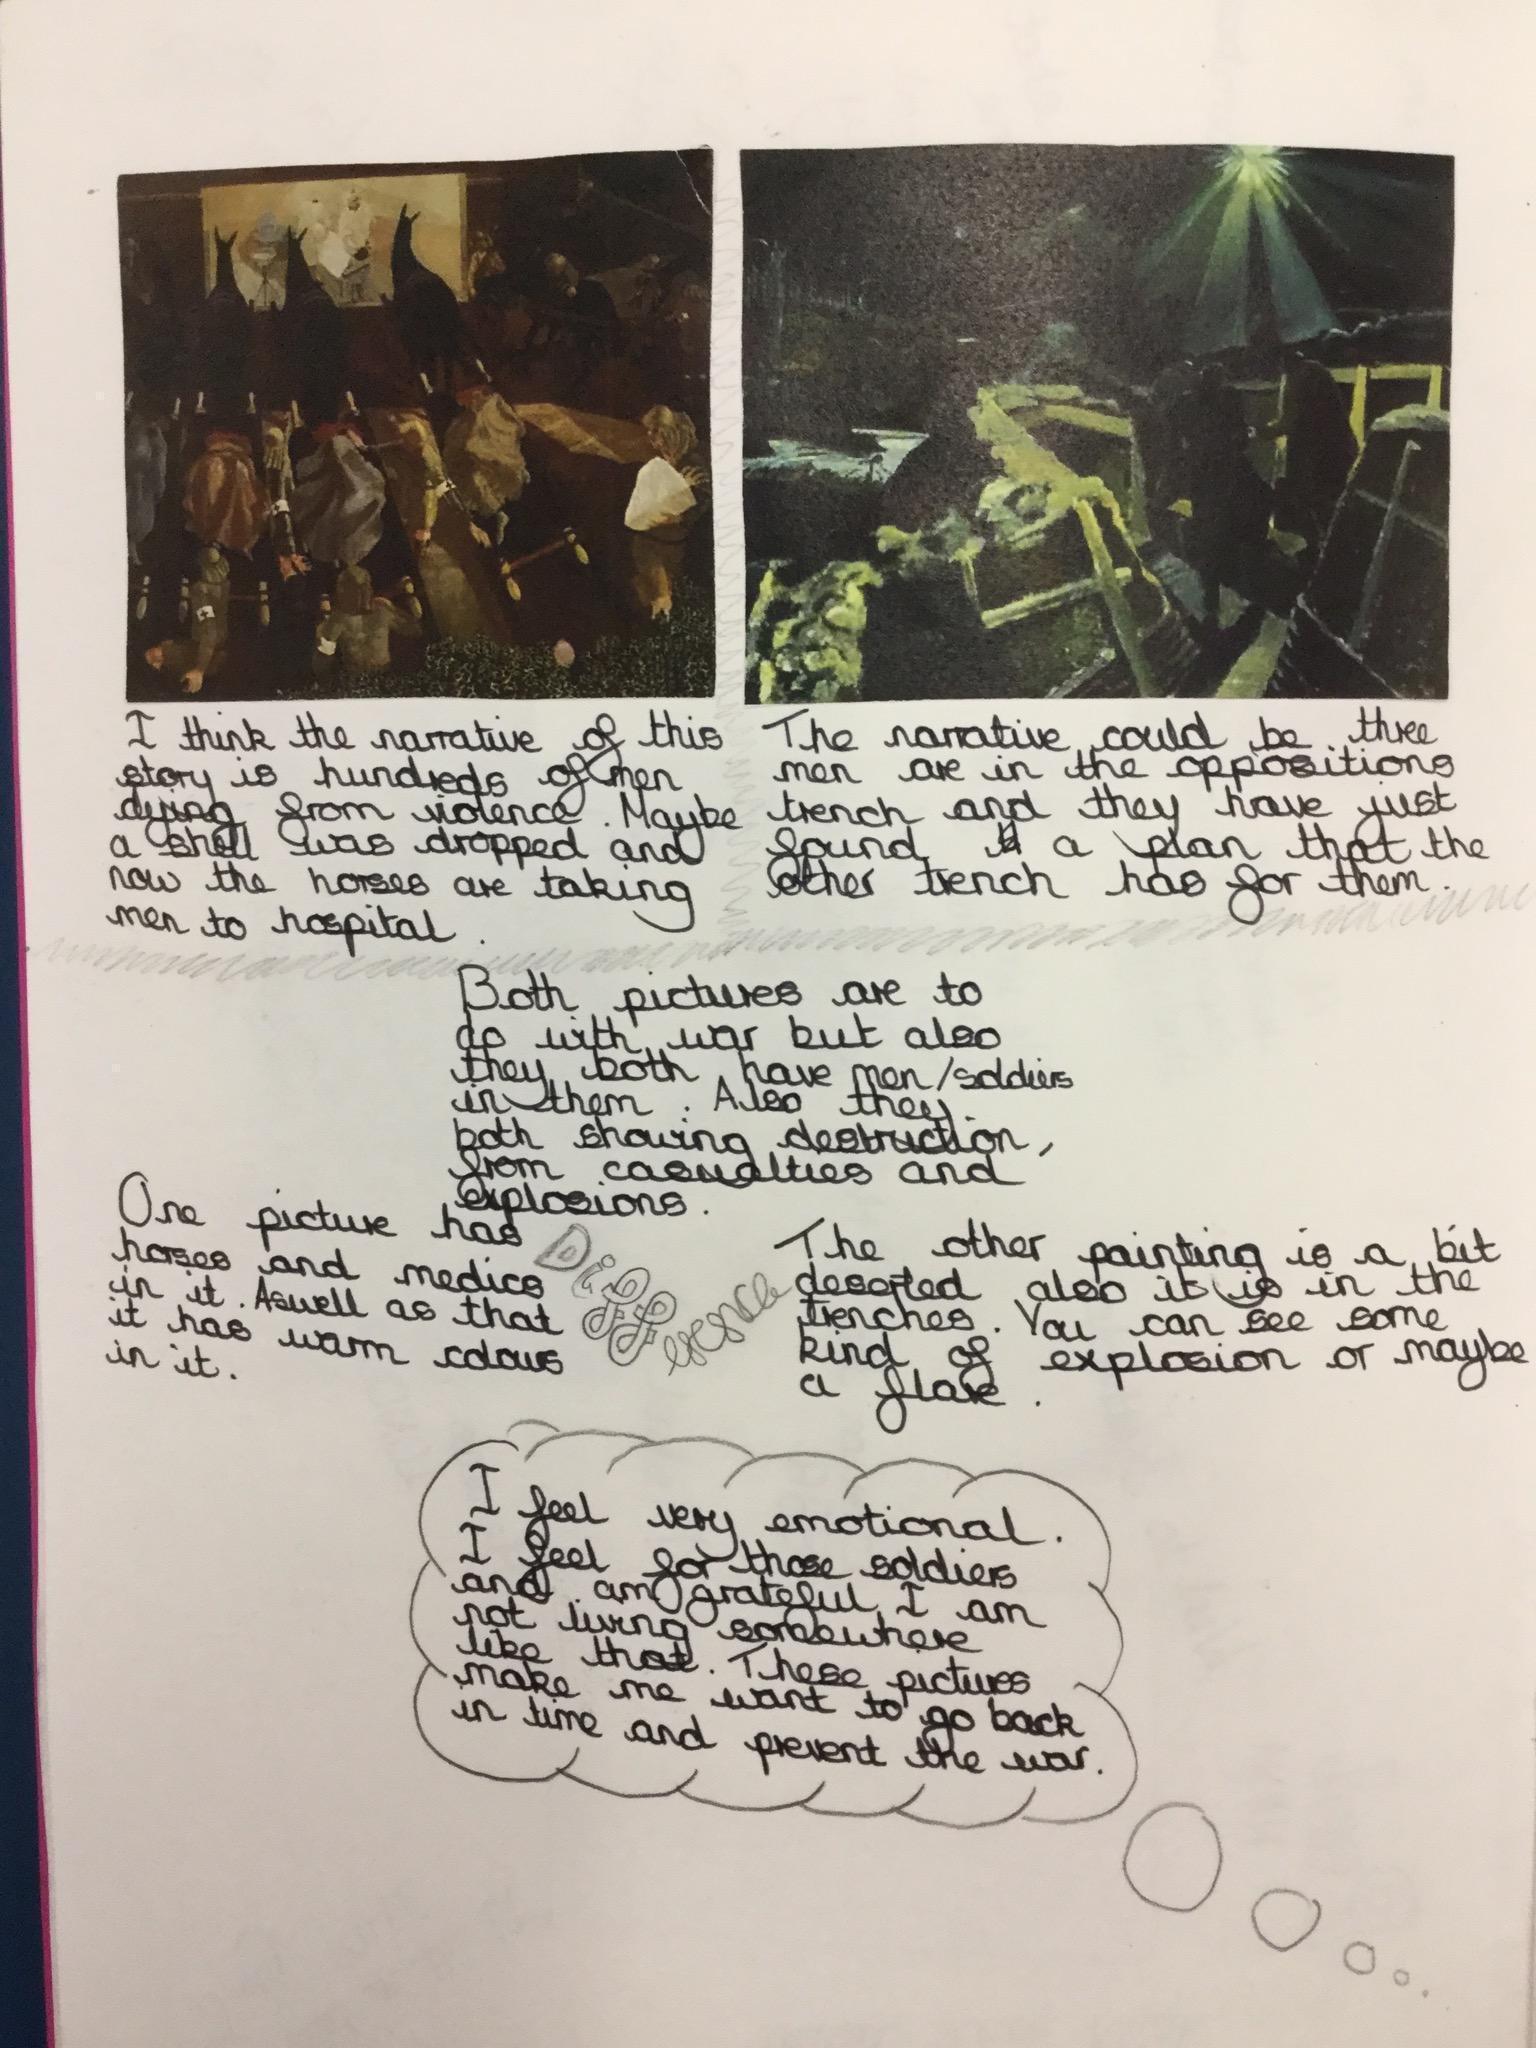 I think the narrative of this
story is hundreds of men
dying from violence. Maybe
a shell was dropped and
now the horses are taking
men to hospital.
The narrative could be three
men are in the oppositions
trench and they have just
found a plan that the
other trench has for them.
Both pictures are to
do with war but also
they both have men/soldiers
in them. Also they
both showing destruction,
from casualties and
explosions.
Difference
One picture has
horses and medics
in it. Aswell as that
it has warm colours
in it.
The other painting is a bit
deserted also it is in the
trenches. You can see some
kind of explosion or maybe
a flare.
I feel very emotional.
I feel for those soldiers
and am grateful I am
not living somewhere
like that. These pictures
make me want to go back
in time and prevent the war.